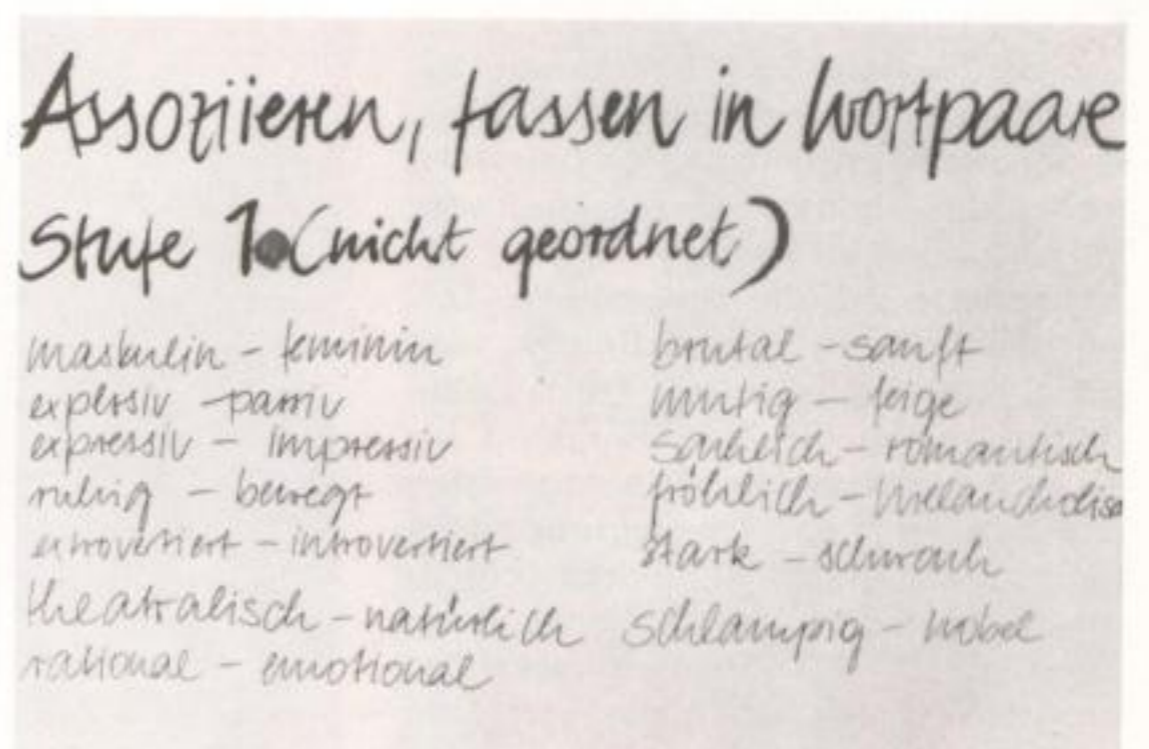 Assoziieren, fassen in Wortpaare
Stufe 1.(nicht geordnet)
maskulin – feminin
explosiv – passiv
expressiv – impressiv
ruhig – bewegt
extrovertiert – introvertiert
theatralisch – natürlich
rational – emotional
brutal – sanft
mutig – feige
sachlich – romantisch
fröhlich – melancholisc
stark – schwach
schlampig – nobel